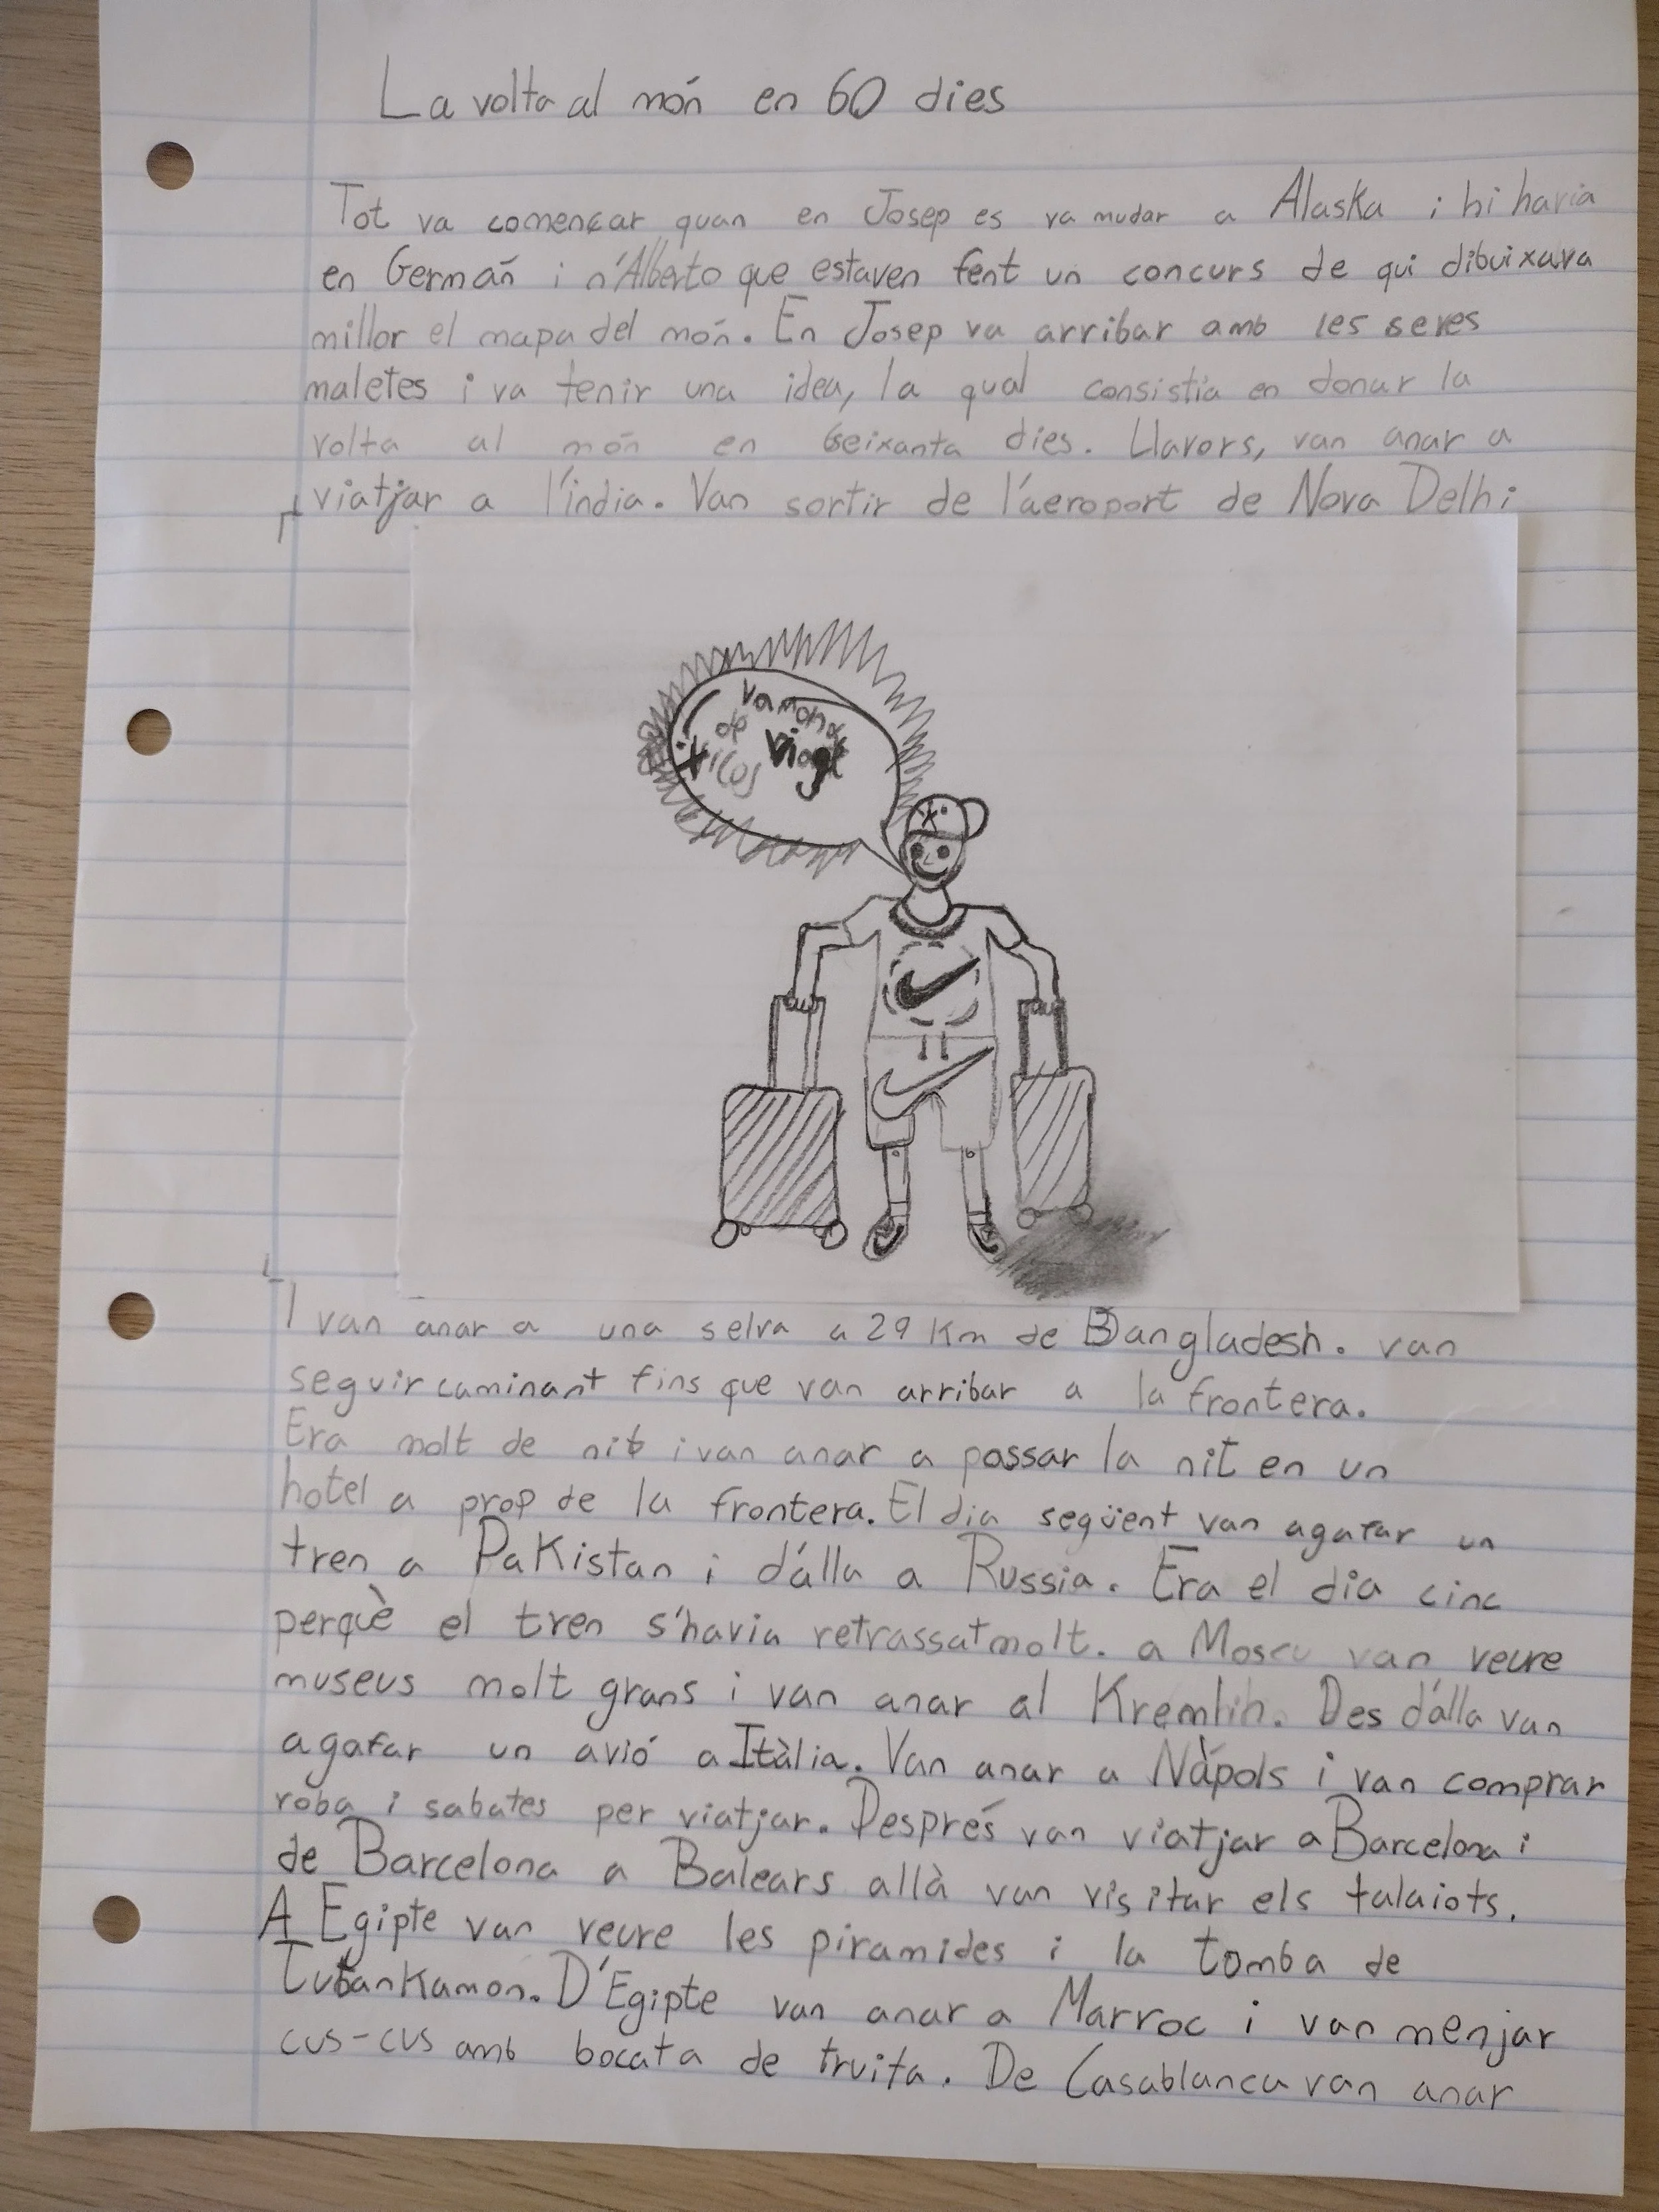 La volta al món en 60 dies
Tot va començar quan en Josep es va mudar a Alaska i hi havia
en Germań i n'Alberto que estaven fent un concurs de qui dibuixava
millor el mapa del món. En Josep va arribar amb les seves
maletes i va tenir una idea, la qual consistia en donar la
volta al món en seixanta dies. Llavors, van anar a
viatjar a l'índia. Van sortir de l'aeroport de Nova Delhi
Vamonos
de viage
xicos
I van anar a una selva a 29 Km de Bangladesh. van
seguir caminant fins que van arribar a la frontera.
Era molt de nit i van anar a passar la nit en un
hotel a prop de la frontera. El dia següent van agafar un
tren a PaKistan i d'álla a Russia. Era el dia cinc
perquè el tren s'havia retrassat molt. a Moscu van veure
museus molt grans i van anar al Kremlin. Des d'álla van
agafar un avió a Itàlia. Van anar a Nàpols i van comprar
roba i sabates per viatjar. Després van viatjar a Barcelona i
de Barcelona a Balears allà van visitar els talaiots.
A Egipte van veure les piramides i la tomba de
TutanKamon. D'Egipte van anar a Marroc i van menjar
cus-cus amb bocata de truita. De Casablanca van anar